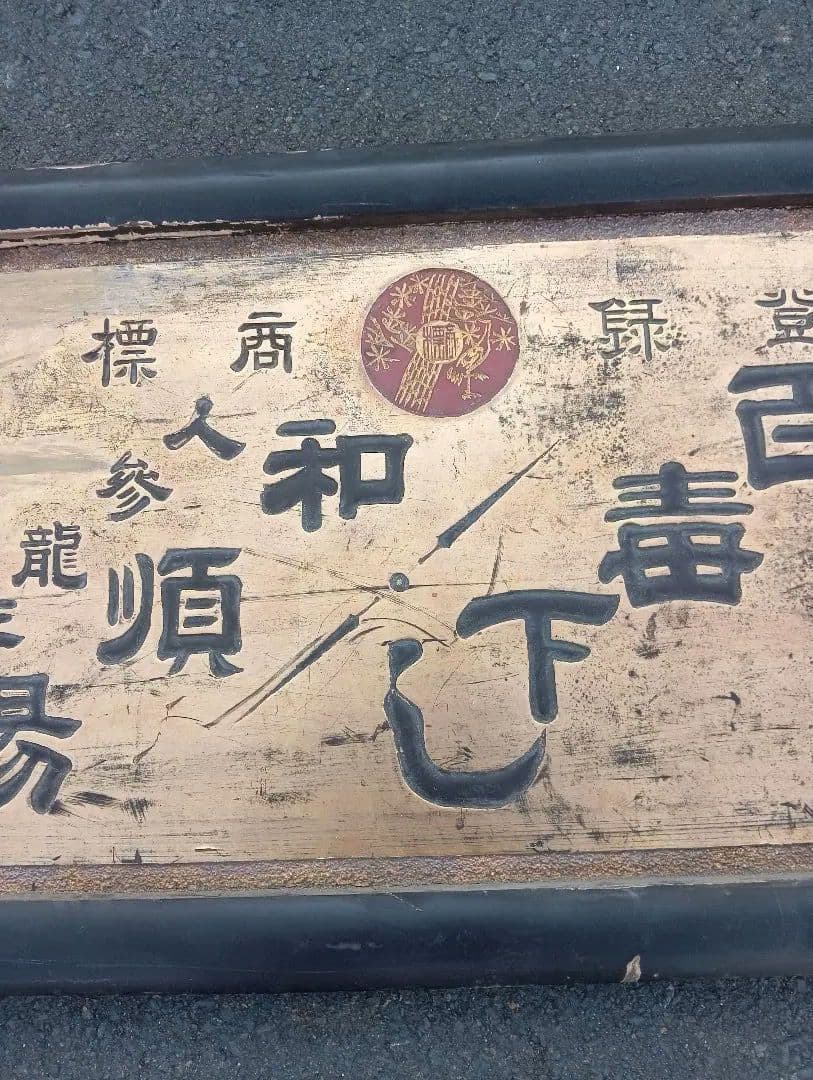 登録商標
百毒下し
和順
人參龍